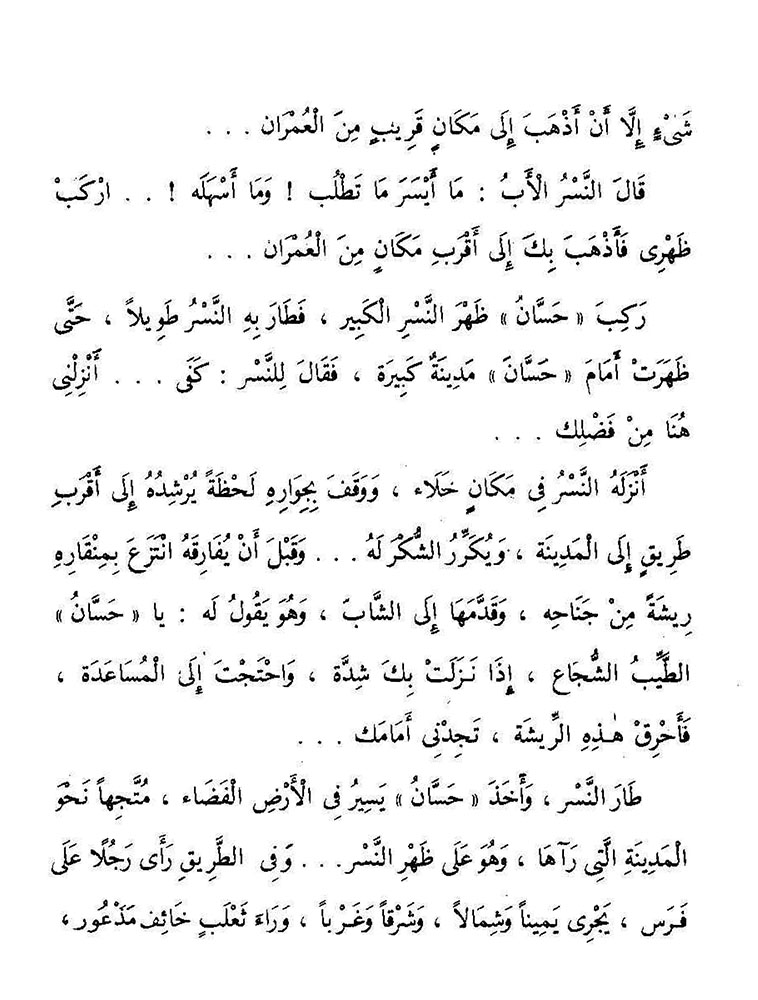 شَىْءٍ إِلَّا أَنْ أَذْهَبَ إِلَى مَكَانٍ قَرِيبٍ مِنَ الْعُمْرَان . . .
قَالَ النَّسْرُ الْأَبُ : مَا أَيْسَرَ مَا تَطْلُب ! وَمَا أَسْهَلَه ! . . ارْكَبْ
ظَهْرِى فَأَذْهَبَ بِكَ إِلَى أَقْرَبِ مَكَانٍ مِنَ الْعُمْرَان . . .
رَكِبَ « حَسَّانُ » ظَهْرَ النَّسْرِ الْكَبِير ، فَطَارَ بِهِ النَّسْرُ طَوِيلاً ، حَتَّى
ظَهَرَتْ أَمَامَ « حَسَّانَ » مَدِينَةٌ كَبِيرَة ، فَقَالَ لِلنَّسْر : كَفَى . . . أَنْزِلْنِى
هُنَا مِنْ فَضْلِك . . .
أَنْزَلَهُ النَّسْرُ فِى مَكَانٍ خَلَاء ، وَوَقَفَ بِجِوَارِهِ لَحْظَةً يُرْشِدُهُ إِلَى أَقْرَبِ
طَرِيقٍ إِلَى الْمَدِينَة ، وَيُكَرِّرُ الشُّكْرَ لَهُ . . . وَقَبْلَ أَنْ يُفَارِقَهُ انْتَزَعَ بِمِنْقَارِهِ
رِيشَةً مِنْ جَنَاحِه ، وَقَدَّمَهَا إِلَى الشَّابّ ، وَهُوَ يَقُولُ لَه : يا « حَسَّانُ »
الطَّيِّبُ الشُّجَاع ، إِذَا نَزَلَتْ بِكَ شِدَّة ، وَاحْتَجْتَ إِلَى الْمُسَاعَدَة ،
فَأَحْرِقْ هٰذِهِ الرِّيشَة ، تَجِدْنِى أَمَامَك . . .
طَارَ النَّسْر ، وَأَخَذَ « حَسَّانُ » يَسِيرُ فِى الْأَرْضِ الْفَضَاء ، مُتَّجِهاً نَحْوَ
الْمَدِينَةِ الَّتِى رَآهَا ، وَهُوَ عَلَى ظَهْرِ النَّسْر. . . وَفِى الطَّرِيقِ رَأَى رَجُلًا عَلَى
فَرَس ، يَجْرِى يَمِيناً وَشِمَالاً ، وَشَرْقاً وَغَرْباً ، وَرَاءَ ثَعْلَبٍ خَائِفٍ مَذْعُور ،